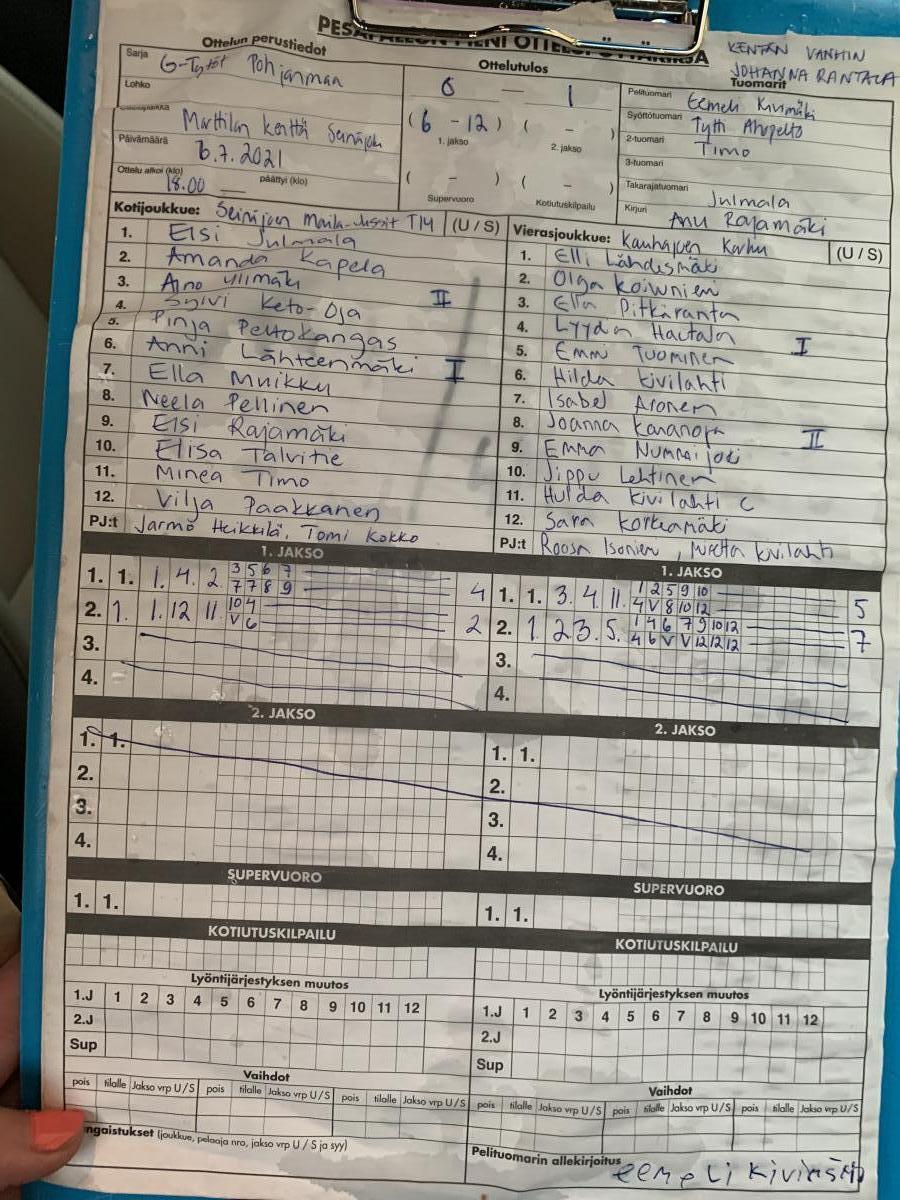 KENTÄN VANHIN
JOHANNA RANTALA
Ottelun perustiedot
Ottelutulos
Tuomarit
Sarja G-Tytöt Pohjanmaa
Lohko
0 - 1
(6 - 12) ( - )
1. jakso 2. jakso
( - ) ( - )
Supervuoro Kotiutuskilpailu
Marttilan kenttä Seinäjoki
Päivämäärä 6.7.2021
Ottelu alkoi (klo) 18.00 päättyi (klo)
Pelituomari Eemeli Kivimäki
Syöttötuomari Tytti Ahopelto
2-tuomari Timo
3-tuomari
Takarajatuomari Julmala
Kirjuri Anu Rajamäki
Kotijoukkue: Seinäjoen Maila-Jussit T14 (U / S)
1. Elsi Julmala
2. Amanda Kapela
3. Aino Ylimäki
4. Sylvi Keto-Oja II
5. Pinja Peltokangas
6. Anni Lähteenmäki I
7. Ella Muikku
8. Neela Pellinen
9. Elsi Rajamäki
10. Elisa Talvitie
11. Minea Timo
12. Vilja Paakkanen
PJ:t Jarmo Heikkilä, Tomi Kokko
Vierasjoukkue: Kauhajoen Karhu (U / S)
1. Elli Lähdesmäki
2. Olga Koivuniemi
3. Ella Pitkäranta
4. Lyydia Hautala
5. Emmi Tuominen I
6. Hilda Kivilahti
7. Isabel Aronen
8. Joanna Kananoja
9. Emma Nummijoki II
10. Jippu Lehtinen
11. Hulda Kivilahti C
12. Sara Korkiamäki
PJ:t Roosa Isoniemi, Kivilahti
1. JAKSO
1. 1. 1. 4. 2 3 5 6 7 4
7 7 8 9
2. 1. 1. 12 11 10 4 2
V 6
3.
4.
1. JAKSO
1. 1. 3. 4. 11. 1 2 5 9 10 5
4 V 8 10 12
2. 1. 2 3. 5. 1 4 6 7 9 10 12 7
4 6 V V 12 12 12
3.
4.
2. JAKSO
1. 1.
2.
3.
4.
2. JAKSO
1. 1.
2.
3.
4.
SUPERVUORO
1. 1.
SUPERVUORO
1. 1.
KOTIUTUSKILPAILU
KOTIUTUSKILPAILU
Lyöntijärjestyksen muutos
1.J 1 2 3 4 5 6 7 8 9 10 11 12
2.J
Sup
Lyöntijärjestyksen muutos
1.J 1 2 3 4 5 6 7 8 9 10 11 12
2.J
Sup
Vaihdot
pois tilalle Jakso vrp U/S pois tilalle Jakso vrp U/S pois tilalle Jakso vrp U/S
Vaihdot
pois tilalle Jakso vrp U/S pois tilalle Jakso vrp U/S pois tilalle Jakso vrp U/S
ngaistukset (joukkue, pelaaja nro, jakso vrp U / S ja syy)
Pelituomarin allekirjoitus
eemeli kivimäki